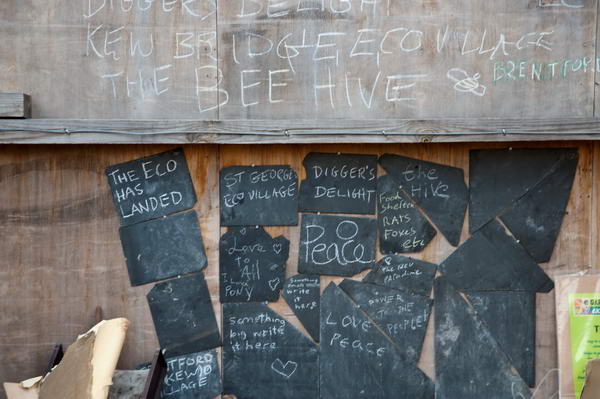 DIGGERS DELIGHT
KEW BRIDGE ECO VILLAGE
THE BEE HIVE
BRENTFORD
THE ECO
HAS
LANDED
ST GEORGES
ECO VILLAGE
DIGGER'S
DELIGHT
the
HIVE
Food
Shelter
RATS
FOXES
etc
Love
To
All
Peace
something
write
it
here
& The New
Paradime
POWER
TO THE
PEOPLE
something
big write
it here
LOVE
PEACE
TFORD
KEW
LAGE